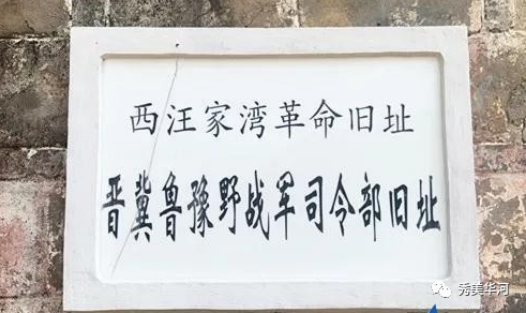 西汪家湾革命旧址
晋冀鲁豫野战军司令部旧址
秀美华河